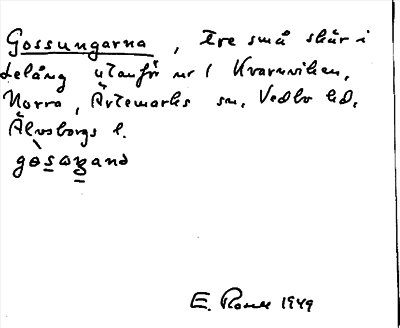 Gossungarna, tre små skär i
Lelång utanför nr 1 Kvarnviken,
Norra, Ärtemarks sn, Vedbo hd,
Älvsborgs l.
E. 1949